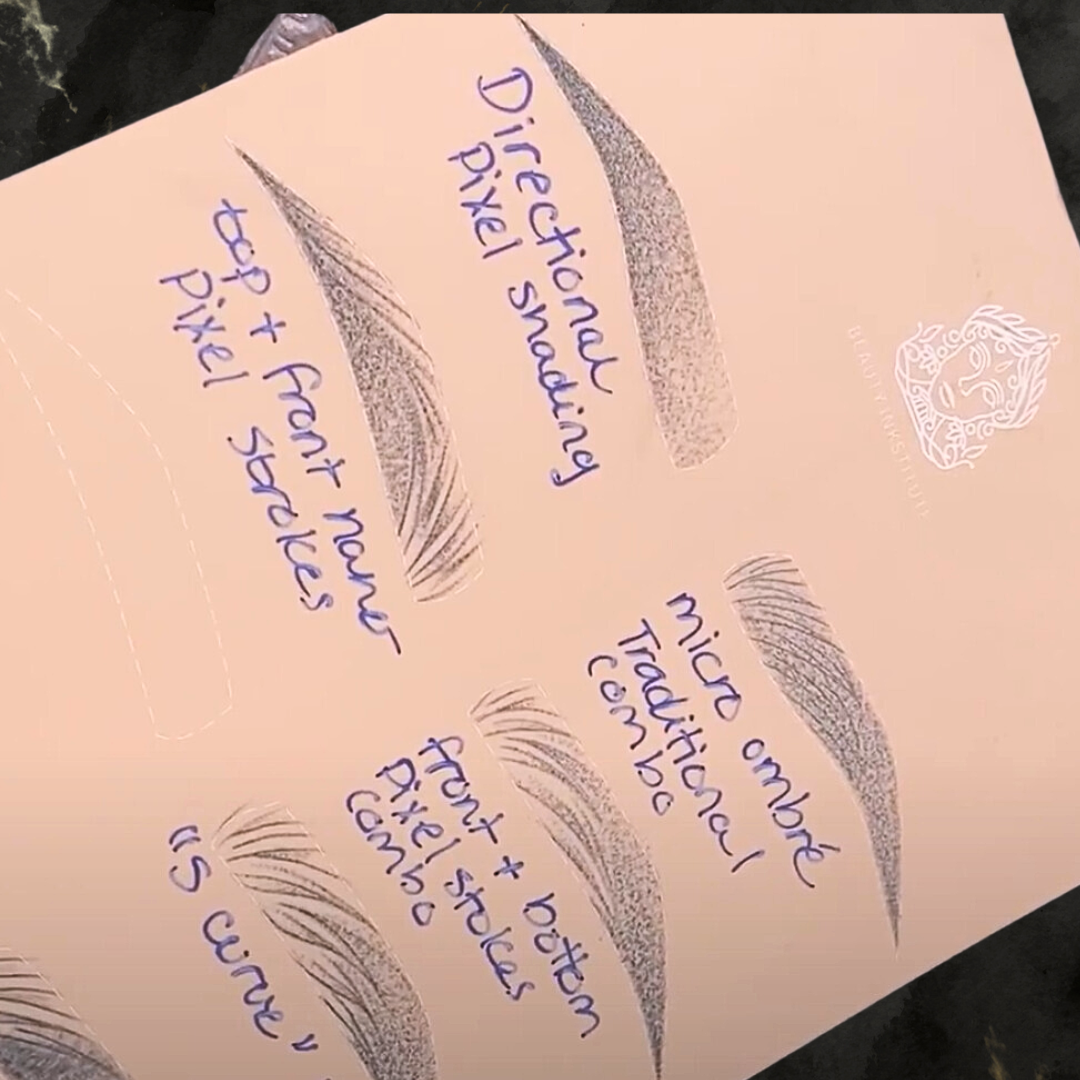 Directional
pixel shading
top + front nano
pixel strokes
micro ombré
Traditional
combo
front + bottom
pixel stokes
combo
"S curve"
BEAUTY INKSTITUTE